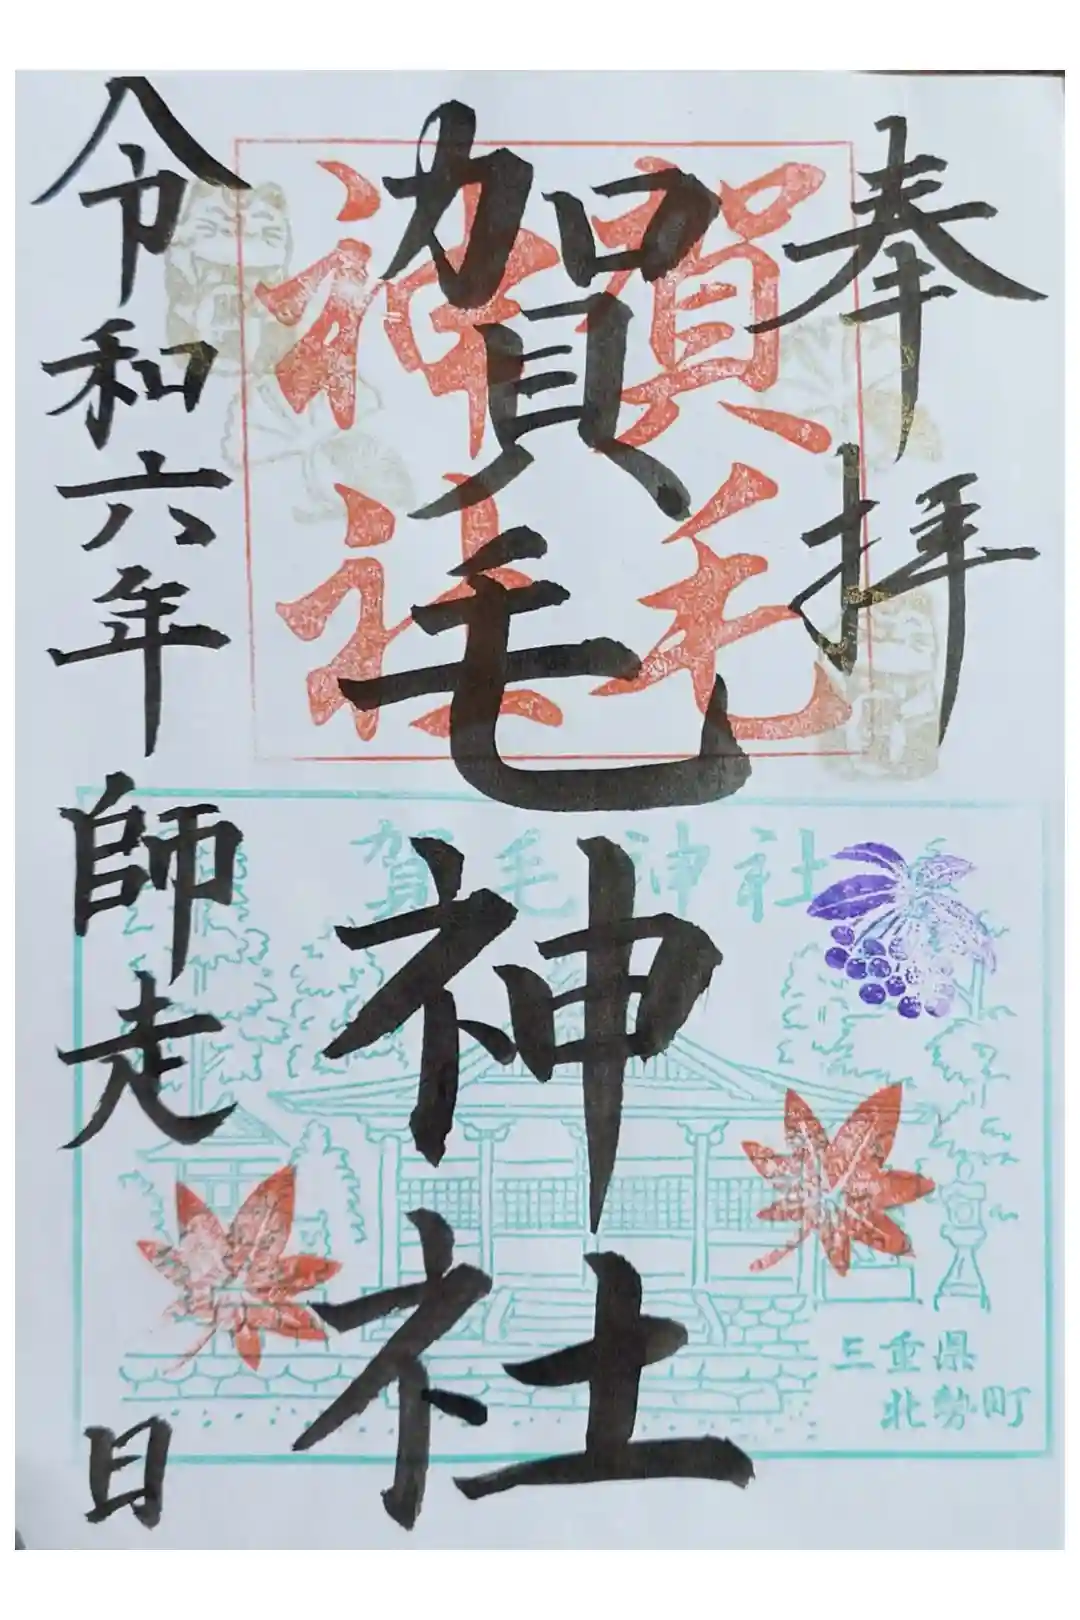 奉拝
賀毛神社
賀毛
神社
令和六年師走 日
賀毛神社
三重県
北勢町